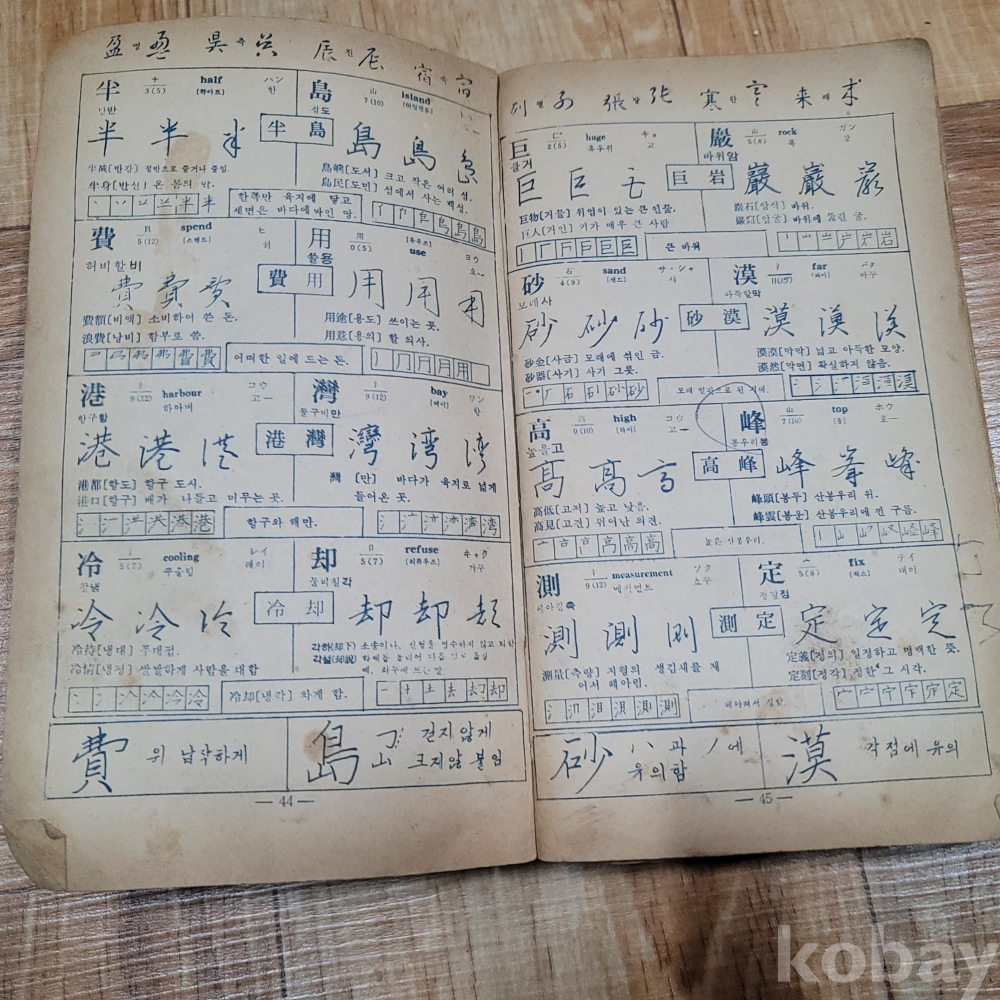 盈 영 昃 측 辰 진 宿 숙
半 十 3(5) half [하아프] ハン 한
島 山 7(10) island
半 半 半 半島 島 島 島
半減[반감] 절반으로 줄거나 줄임.
半身[반신] 온 몸의 반.
島嶼[도서] 크고 작은 여러 섬.
島民[도민] 섬에서 사는 백성.
한쪽만 육지에 닿고
세면은 바다에싸인 땅.
費 貝 5(12) spend [스펜드] ヒ 히
用 用 0(5) use [유우즈] ヨウ 요ー
허비할비 쓸용
費 費 費 費用 用 用 用
費額[비액] 소비하여 쓴 돈.
浪費[낭비] 함부로 씀.
用途[용도] 쓰이는 곳.
用意[용의] 할 의사.
어떠한 일에 드는 돈.
港 9(12) harbour 하아버 コウ 고ー
灣 bay [베이] ワン 완
항구항 물구비만
港 港 港 港灣 灣 湾 湾
港都[항도] 항구 도시.
港口[항구] 배가 나들고 머무는 곳.
灣 [만] 바다가 육지로 넓게
들어온 곳.
항구와 해만.
冷 5(7) cooling 쿠울링 レイ 레이
却 卩 5(7) refuse [리퓨우즈] キャク 갸구
찰냉 물리칠각
冷 冷 冷 冷却 却 却 却
冷待[냉대] 푸대접.
冷情[냉정] 쌀쌀하게 사람을 대함
각하(却下)
각설(却說)
冷却[냉각] 차게 함.
費 위 납작하게
島 걷지않게
크지않 붙임
— 44 —
列 열 張 장 寒 한 來 래
巨 2(5) huge 휴우쥐 キョ 교
巖 山 rock 록 ガン 강
클거 바위암
巨 巨 巨 巨岩 巖 巖 巖
巨物[거물] 위엄이 있는 큰 인물.
巨人[거인] 키가 매우 큰 사람
巖石[암석] 바위.
巖窟[암굴] 바위에 뚫린 굴.
큰 바위
砂 石 4(9) sand [샌드] サ・シャ 사
漠 11(15) far [파아] バク 바구
모래사 아득할막
砂 砂 砂 砂漠 漠 漠 漠
砂金[사금] 모래에 섞인 금.
砂器[사기] 사기 그릇.
漠漠[막막] 넓고 아득한 모양.
漠然[막연] 확실하지 않음.
모래 벌판으로 된 지대.
高 高 0(10) high [하이] コウ 고ー
峰 山 7(10) top [톱] ホウ 호ー
높을고 봉우리봉
高 高 高 高峰 峰 峯 峰
高低[고저] 높고 낮음.
高見[고견] 뛰어난 의견.
峰頭[봉두] 산봉우리 위.
峰雲[봉운] 산봉우리에 낀 구름.
높은 산봉우리.
測 9(12) measurement 메저먼트 ソク 소구
定 宀 5(8) fix [픽스] テイ 데이
헤아릴측 정할정
測 測 測 測定 定 定 定
測量[측량] 지형의 생김새를 재
어서 헤아림.
定義[정의] 일정하고 명백한 뜻.
定刻[정각] 정한 그 시각.
헤아려서 정함
砂 ハ 과 ノ에
유의함
漠 각점에 유의
— 45 —
kobay